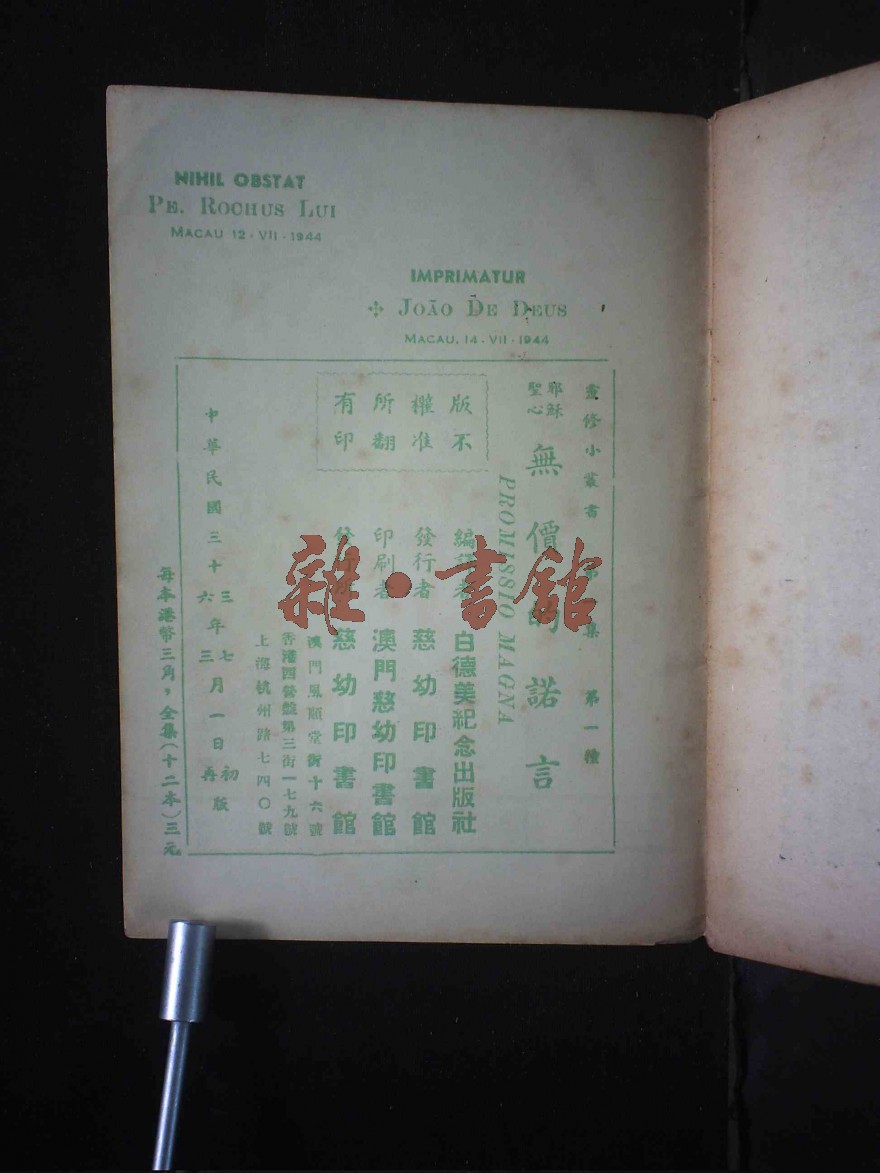 NIHIL OBSTAT
PE. ROCHUS LUI
MACAU 12 - VII - 1944
IMPRIMATUR
✣ JOÃO DE DEUS
MACAU, 14 - VII - 1944
靈修小叢書 集 第一種
耶穌
聖心
無價的諾言
PROMISSIO MAGNA
版權所有
不准翻印
編譯者 白德美紀念出版社
發行者 慈幼印書館
印刷者 澳門慈幼印書館
發 所 慈幼印書館
澳門風順堂街十六號
香港西營盤第三街一七九號
上海杭州路七四〇號
中華民國三十
三年七月一日初版
六年三月一日再版
每本港幣三角，全集(十二本)三元
雜·書館